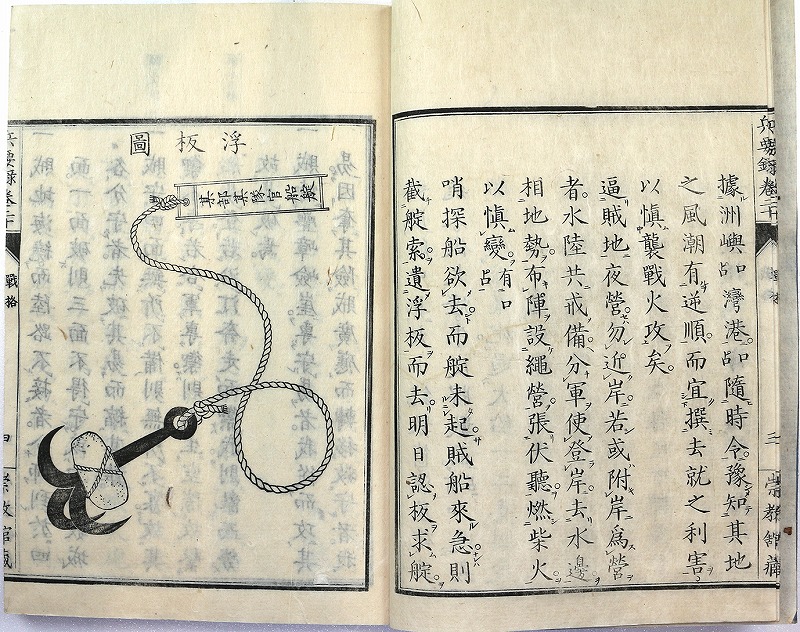 兵要録卷二十
戰格
三
崇教館藏
據洲嶼口占灣港口占隨時令豫知其地
之風潮有逆順而宜撰去就之利害
以愼襲戰火攻矣
逼賊地夜營勿近岸若或附岸爲營
者水陸共戒備分軍使登岸去水邊
相地勢布陣設繩營張伏聽燃柴火
以愼變有口占
哨探船欲去而碇未起賊船來急則
截碇索遺浮板而去明日認板求碇
浮板圖
某部某隊官船碇
兵要録卷二十
戰格
四
崇教館藏